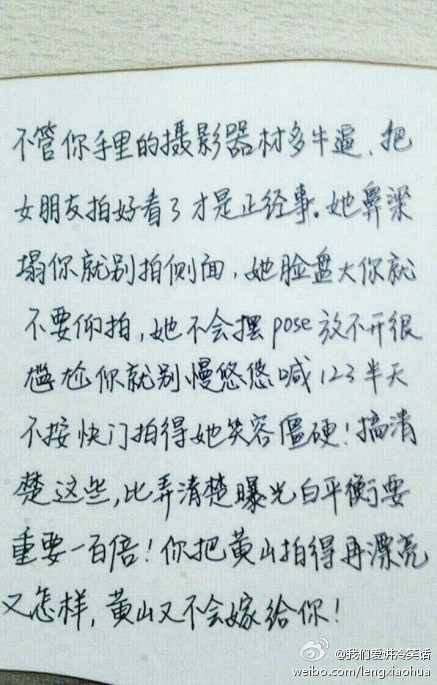 不管你手里的摄影器材多牛逼、把
女朋友拍好看了才是正经事。她鼻梁
塌你就别拍侧面，她脸盘大你就
不要仰拍，她不会摆pose放不开很
尴尬你就别慢悠悠喊123半天
不按快门拍得她笑容僵硬！搞清
楚这些，比弄清楚曝光白平衡要
重要一百倍！你把黄山拍得再漂亮
又怎样，黄山又不会嫁给你！
@我们爱讲冷笑话
weibo.com/lengxiaohua